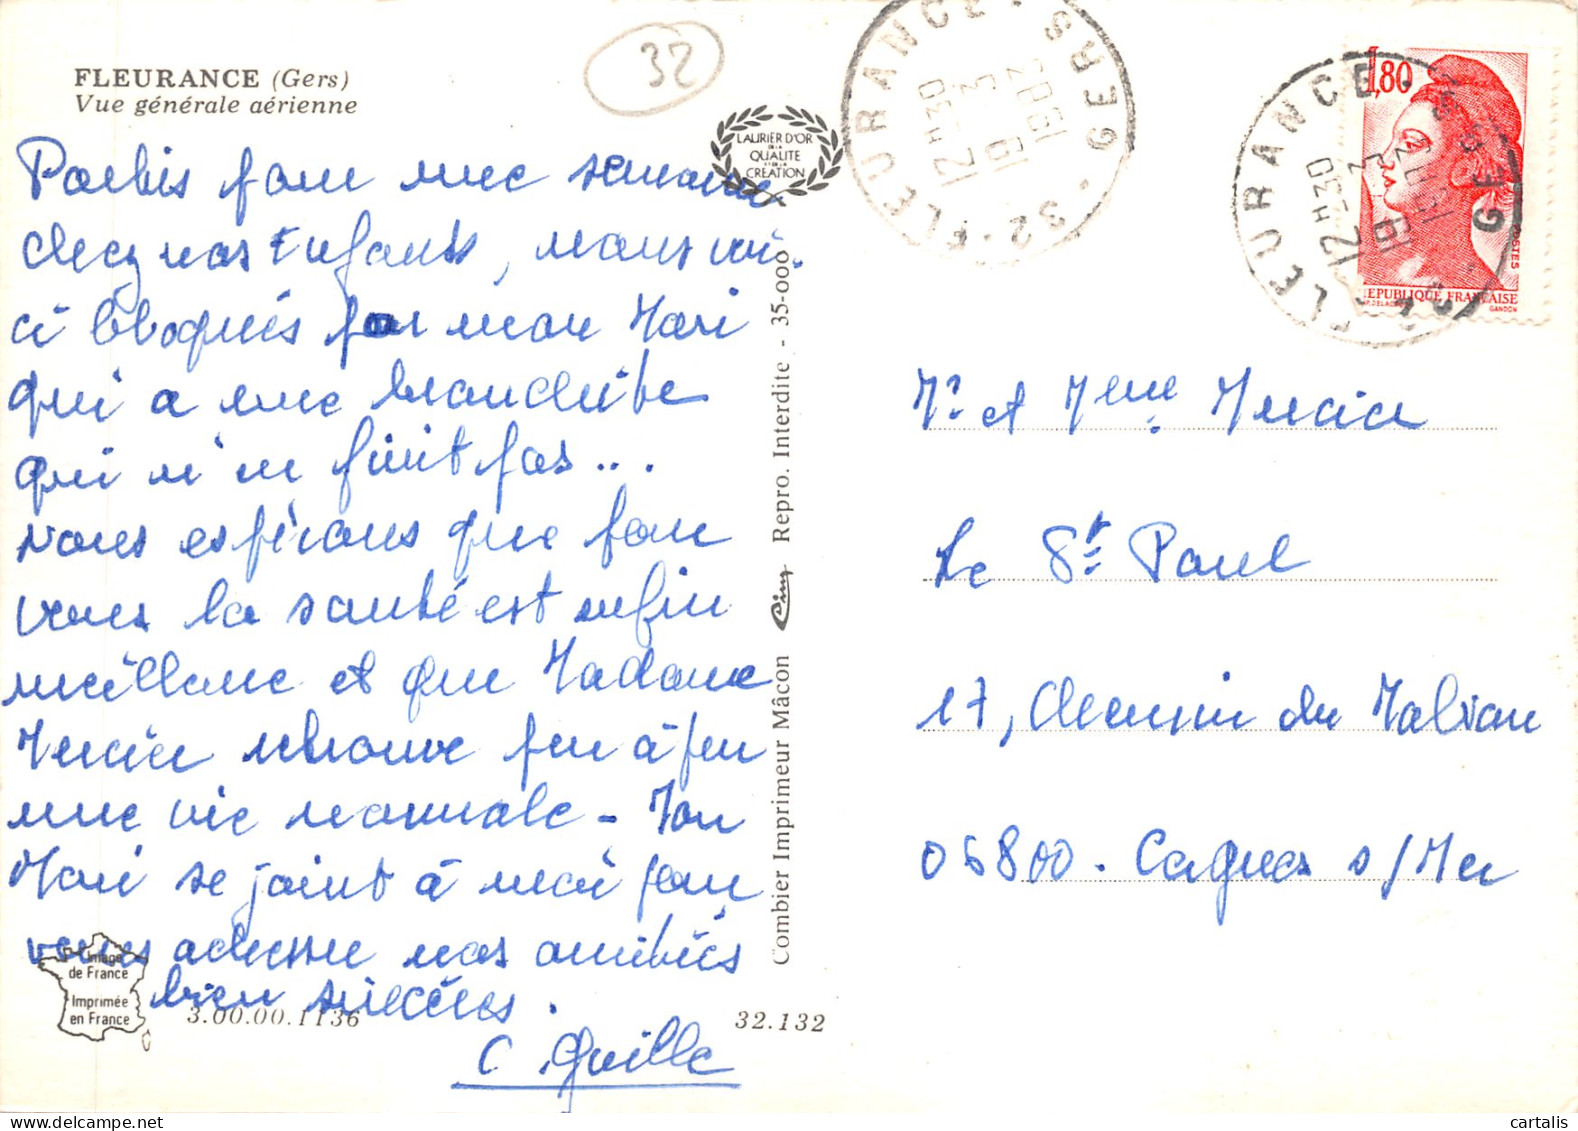 FLEURANCE (Gers)
Vue générale aérienne
32
LAURIER D'OR
DE LA
QUALITE
ET DE LA
CREATION
Partis pour une semaine
chez nos Enfants, nous voi-
ci bloqués par mon Mari
qui a une bronchite
qui n'en finit pas...
Nous espérons que pour
vous la santé est enfin
meilleure et que Madame
Mercier retrouve peu à peu
une vie normale - Mon
Mari se joint à moi pour
vous adresser nos amitiés
bien sincères.
C Guille
Image
de France
Imprimée
en France
3.00.00.1136
32.132
Combier Imprimeur Mâcon Cim Repro. Interdite - 35-000
32-FLEURANCE · GERS ·
12H30
19 3
1985
1,80
POSTES
REPUBLIQUE FRANÇAISE
GANDON
32-FLEURANCE · GERS
12H30
19 3
Mr et Mme Mercier
Le St Paul
17, Chemin du Malvan
06800. Cagnes s/Mer
cartalis